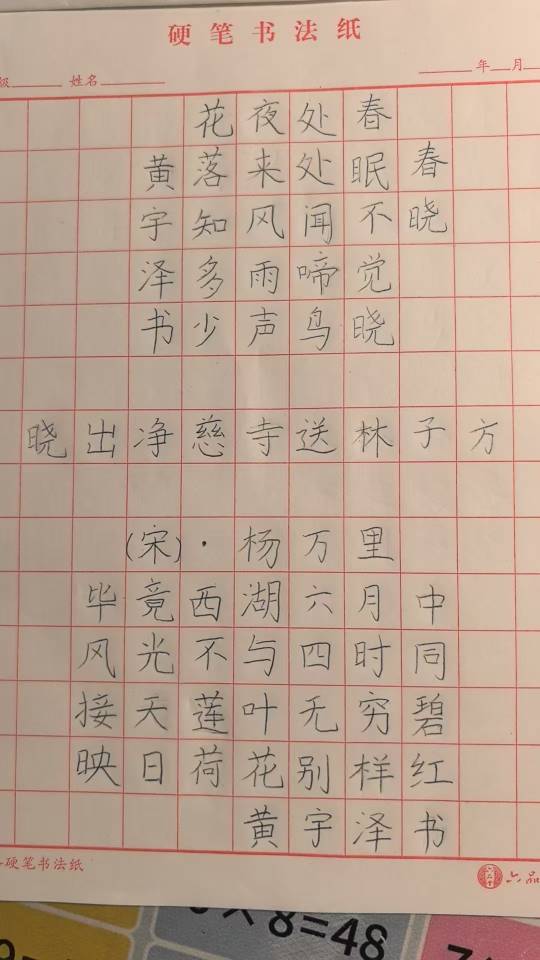 硬笔书法纸
级 姓名 年 月
春晓
春眠不觉晓
处处闻啼鸟
夜来风雨声
花落知多少
黄宇泽书
晓出净慈寺送林子方
(宋)·杨万里
毕竟西湖六月中
风光不与四时同
接天莲叶无穷碧
映日荷花别样红
黄宇泽书
硬笔书法纸
六品
×8=48